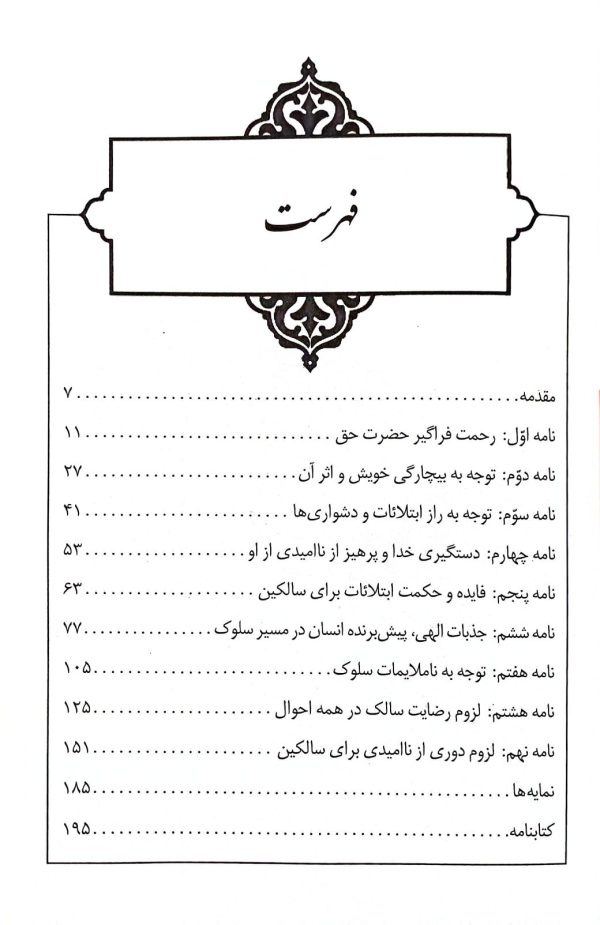 فهرست
مقدمه. . . . . . . . . . . . . . . . . . . . . . . . . . . . . . . . . . . . . . . . . . . . . . . . . . ۷
نامه اوّل: رحمت فراگیر حضرت حق . . . . . . . . . . . . . . . . . . . . . . . . . . . . . ۱۱
نامه دوّم: توجه به بیچارگی خویش و اثر آن . . . . . . . . . . . . . . . . . . . . . . . . ۲۷
نامه سوّم: توجه به راز ابتلائات و دشواری‌ها . . . . . . . . . . . . . . . . . . . . . . . . ۴۱
نامه چهارم: دستگیری خدا و پرهیز از ناامیدی از او . . . . . . . . . . . . . . . . . . ۵۳
نامه پنجم: فایده و حکمت ابتلائات برای سالکین . . . . . . . . . . . . . . . . . . . . ۶۳
نامه ششم: جذبات الهی، پیش‌برنده انسان در مسیر سلوک . . . . . . . . . . . . . . . ۷۷
نامه هفتم: توجه به ناملایمات سلوک . . . . . . . . . . . . . . . . . . . . . . . . . . . ۱۰۵
نامه هشتم: لزوم رضایت سالک در همه احوال . . . . . . . . . . . . . . . . . . . . . ۱۲۵
نامه نهم: لزوم دوری از ناامیدی برای سالکین . . . . . . . . . . . . . . . . . . . . . ۱۵۱
نمایه‌ها . . . . . . . . . . . . . . . . . . . . . . . . . . . . . . . . . . . . . . . . . . . . . . . ۱۸۵
کتابنامه. . . . . . . . . . . . . . . . . . . . . . . . . . . . . . . . . . . . . . . . . . . . . . . ۱۹۵